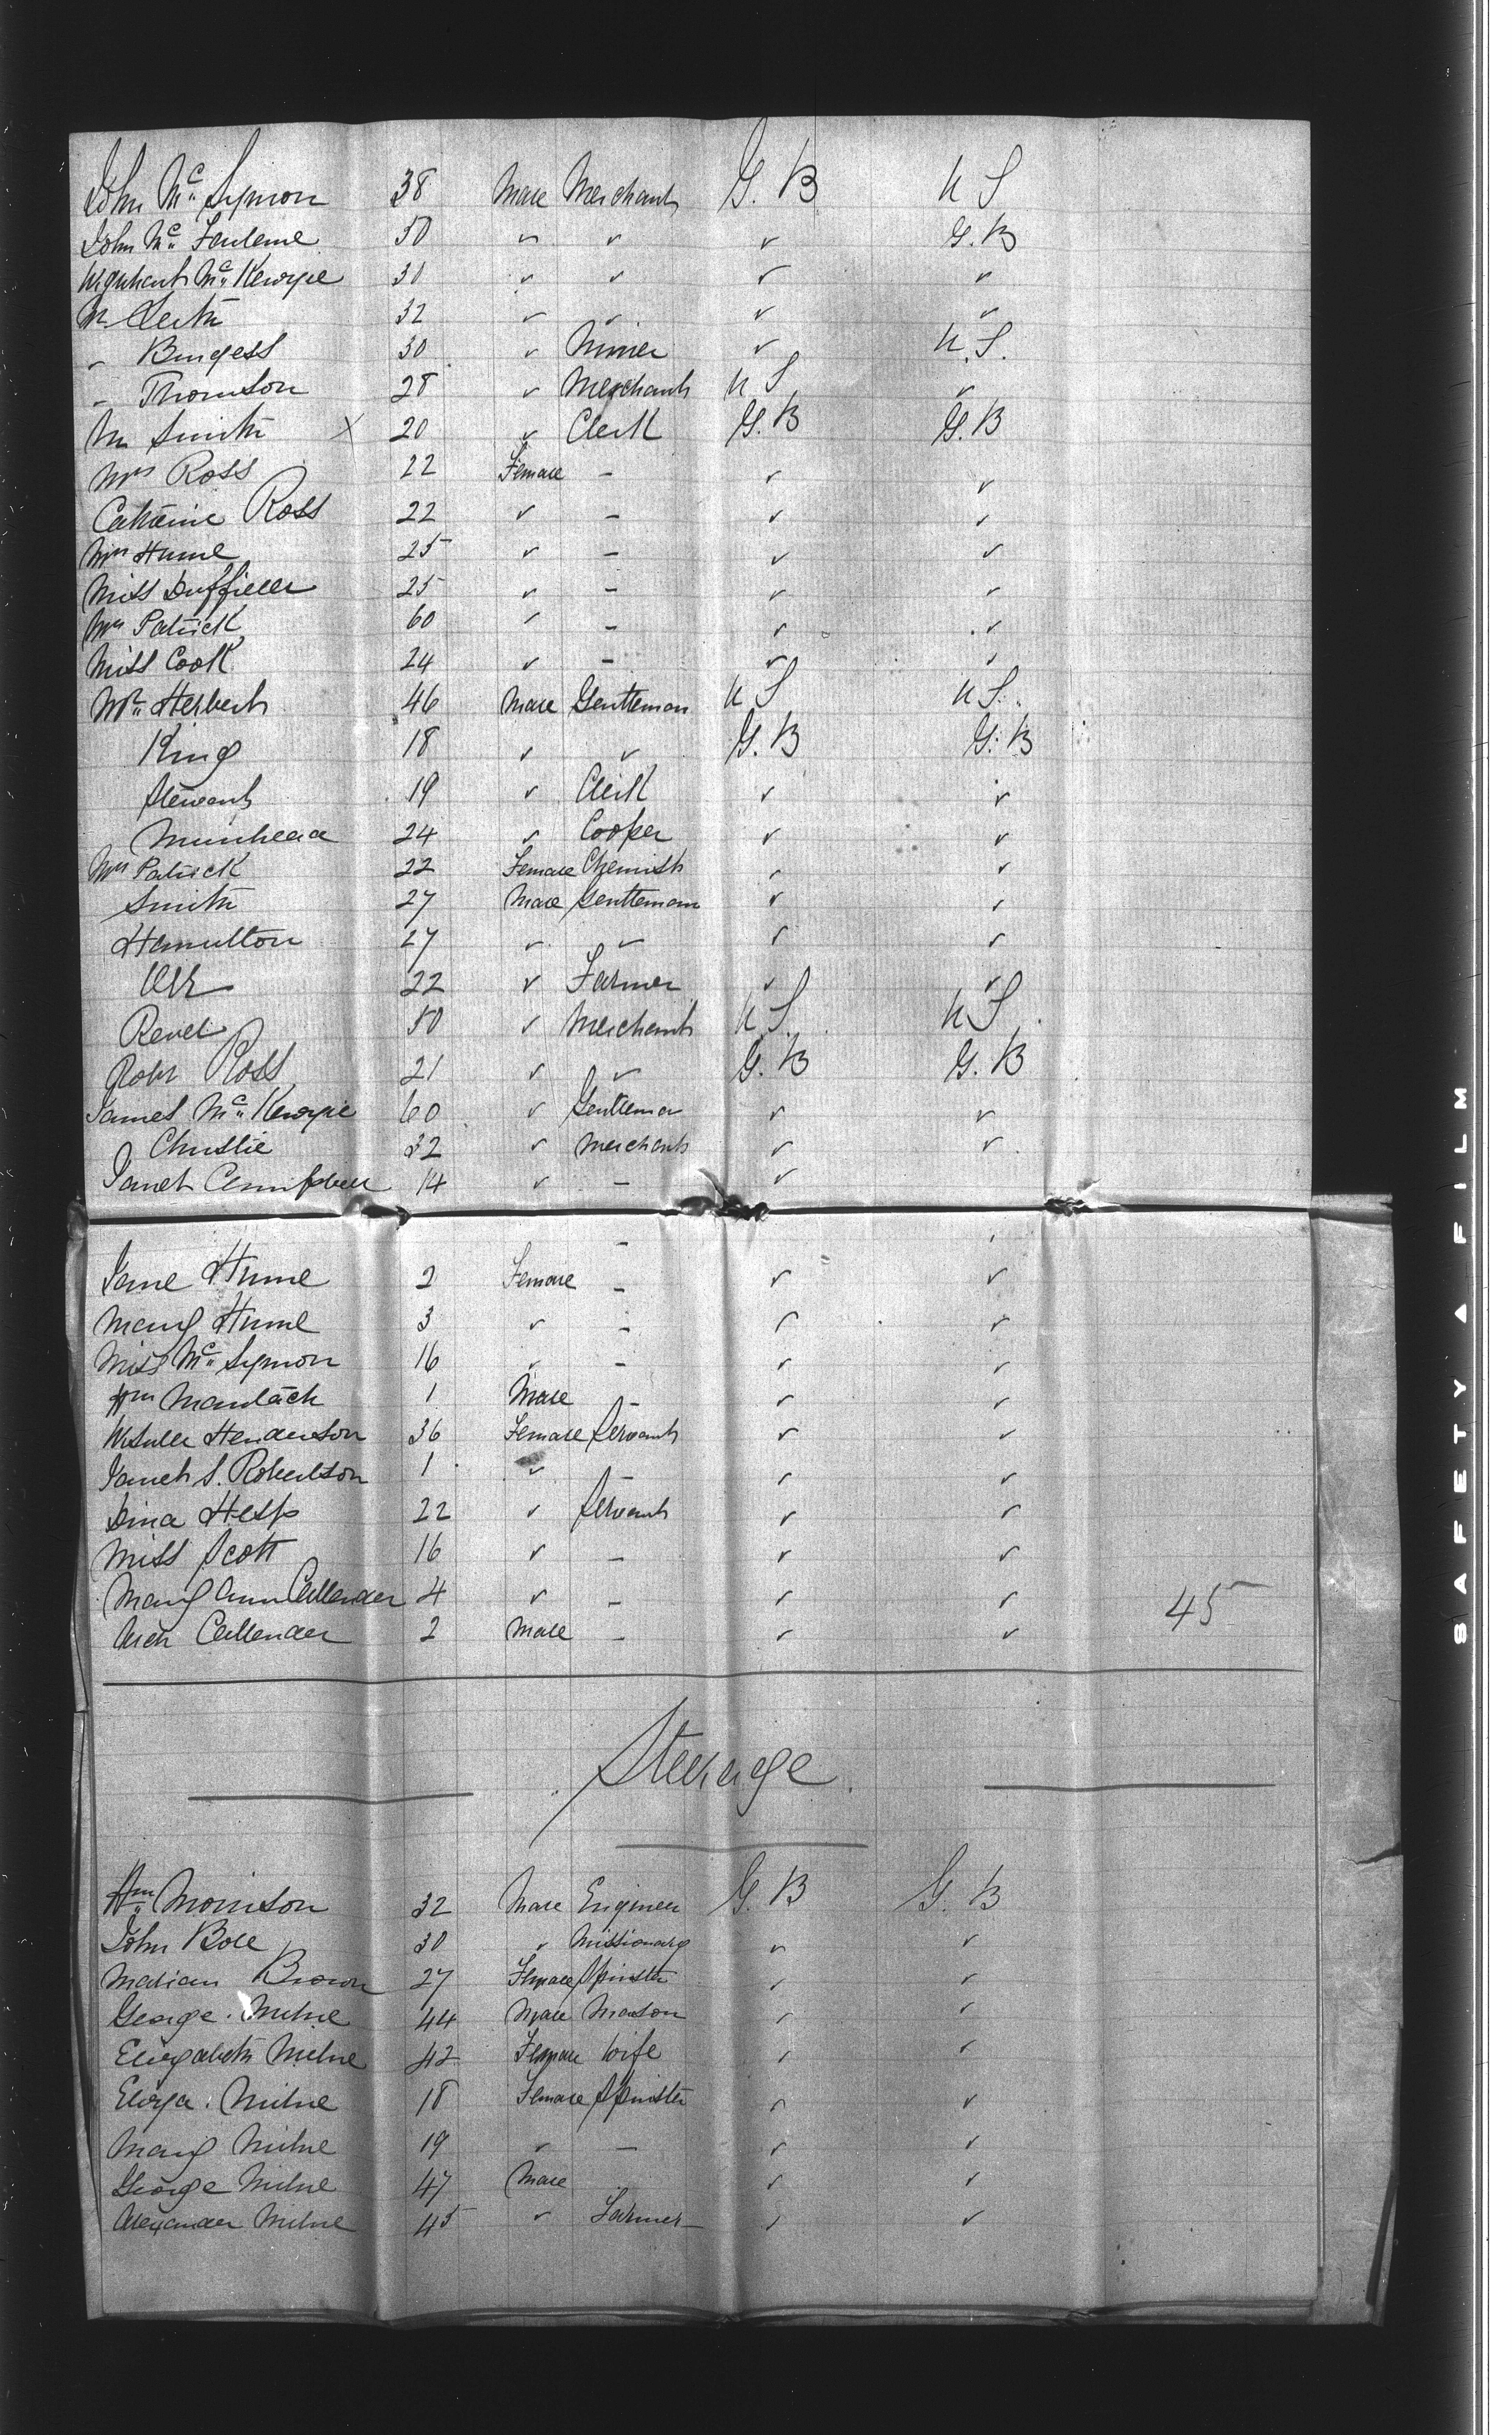 John Mc Symon 38 Male Merchant G. B U S
John Mc 30 ✓ ✓ ✓ G. B
Urquhart Mc Kenzie 30 ✓ ✓ ✓ ✓
Mr Leith 32 ✓ ✓ ✓ ✓
" Burgess 30 ✓ Miner ✓ U. S.
" Thomson 28 ✓ Merchant U S ✓
Mr Smith X 20 ✓ Clerk G. B G. B
Mrs Ross 22 Female – ✓ ✓
Catherine Ross 22 ✓ – ✓ ✓
Mrs Hume 25 ✓ – ✓ ✓
Miss Duffield 25 ✓ – ✓ ✓
Mrs Patrick 60 ✓ – ✓ ✓
Miss Cook 24 ✓ – ✓ ✓
Mr Herbert 46 Male Gentleman U S U S.
King 18 ✓ ✓ G. B G. B
Stewart 19 ✓ Clerk ✓ ✓
Muirhead 24 ✓ Cooper ✓ ✓
Mrs Patrick 22 Female Chemist ✓ ✓
Smith 27 Male Gentleman ✓ ✓
Hamilton 27 ✓ ✓ ✓ ✓
Orr 22 ✓ Farmer ✓ ✓
50 ✓ Merchant U S. U S.
Robt Ross 21 ✓ ✓ G. B G. B
James Mc Kenzie 60 ✓ Gentleman ✓ ✓
Christie 32 ✓ Merchant ✓ ✓
Janet Campbell 14 ✓ – ✓
Jane Hume 2 Female – ✓ ✓
Mary Hume 3 ✓ – ✓ ✓
Miss Mc Symon 16 ✓ – ✓ ✓
Wm 1 Male – ✓ ✓
Henderson 36 Female Servant ✓ ✓
Janet S. Robertson 1 ✓ – ✓ ✓
Dina 22 ✓ Servant ✓ ✓
Miss Scott 16 ✓ – ✓ ✓
Mary Ann Callender 4 ✓ – ✓ ✓ 45
Arch Callender 2 Male – ✓ ✓
Steerage.
Wm Morrison 32 Male Engineer G. B G. B
John 30 ✓ Missionary ✓ ✓
Marian Brown 27 Female Spinster ✓ ✓
George Milne 44 Male Mason ✓ ✓
Elizabeth Milne 42 Female Wife ✓ ✓
Eliza. Milne 18 Female Spinster ✓ ✓
Mary Milne 19 ✓ – ✓ ✓
George Milne 47 Male ✓ ✓
Alexander Milne 45 ✓ Farmer ✓ ✓
SAFETY A FILM